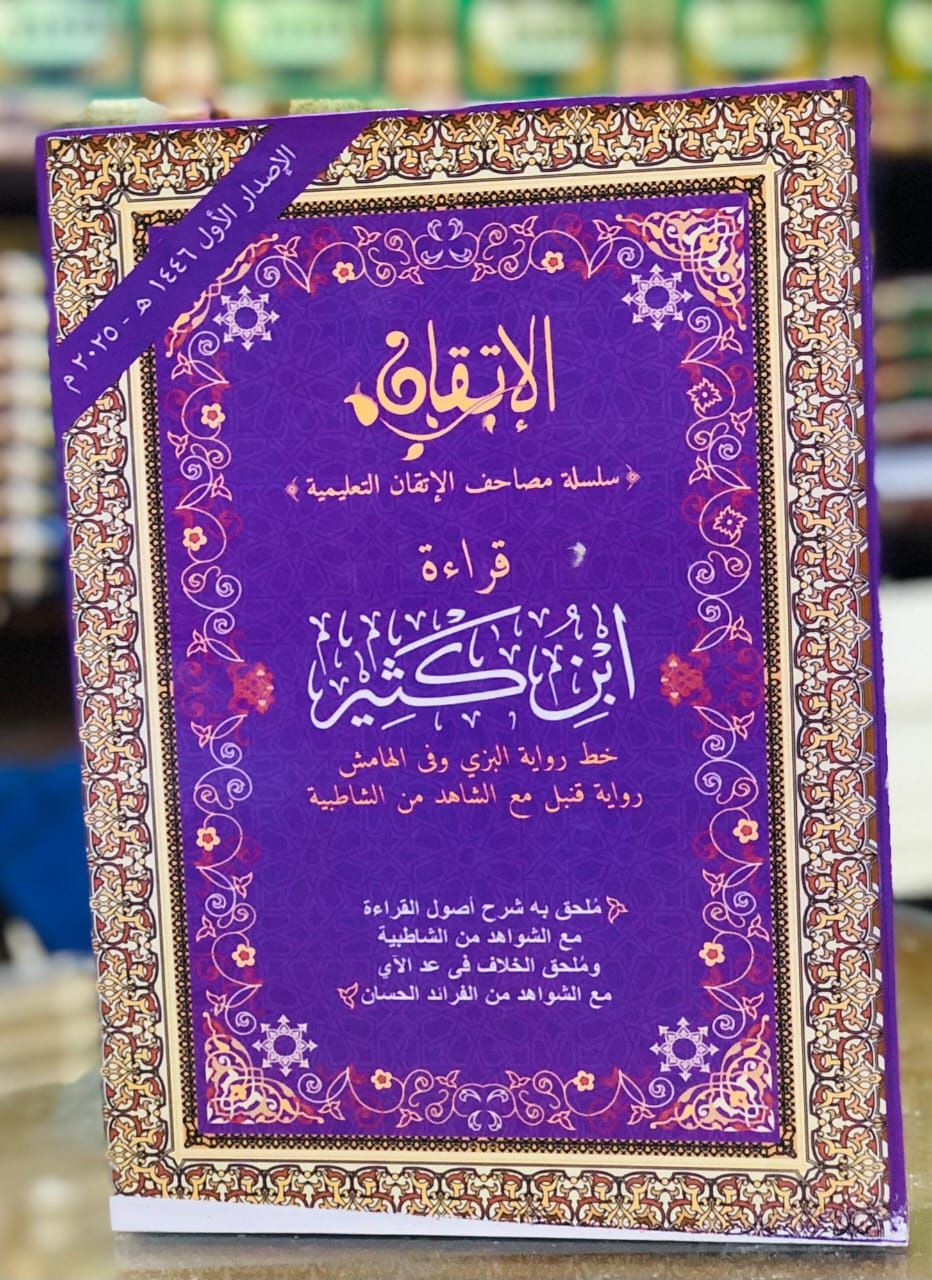 الإصدار الأول ١٤٤٦ هـ - ٢٠٢٥ م
الإتقان
سلسلة مصاحف الإتقان التعليمية
قراءة
ابْنِ كَثِيرٍ
خط رواية البزي وفى الهامش
رواية قنبل مع الشاهد من الشاطبية
مُلحق به شرح أصول القراءة
مع الشواهد من الشاطبية
ومُلحق الخلاف فى عد الآي
مع الشواهد من الفرائد الحسان